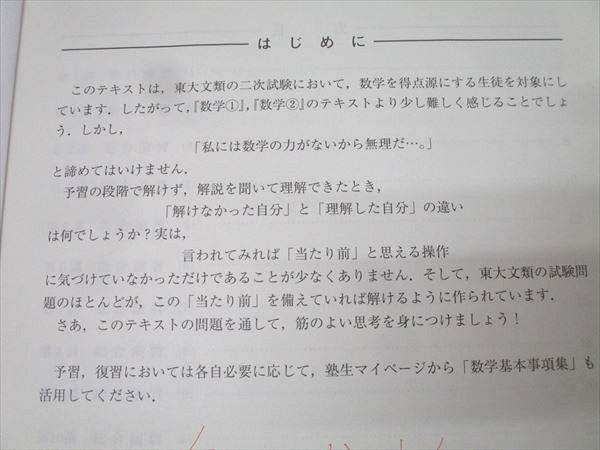 はじめに
このテキストは，東大文類の二次試験において，数学を得点源にする生徒を対象にし
ています．したがって，『数学①』，『数学②』のテキストより少し難しく感じることでしょ
う．しかし，
「私には数学の力がないから無理だ…。」
と諦めてはいけません．
予習の段階で解けず，解説を聞いて理解できたとき，
「解けなかった自分」と「理解した自分」の違い
は何でしょうか？実は，
言われてみれば「当たり前」と思える操作
に気づけていなかっただけであることが少なくありません．そして，東大文類の試験問
題のほとんどが，この「当たり前」を備えていれば解けるように作られています．
さあ，このテキストの問題を通して，筋のよい思考を身につけましょう！
予習，復習においては各自必要に応じて，塾生マイページから「数学基本事項集」も
活用してください．